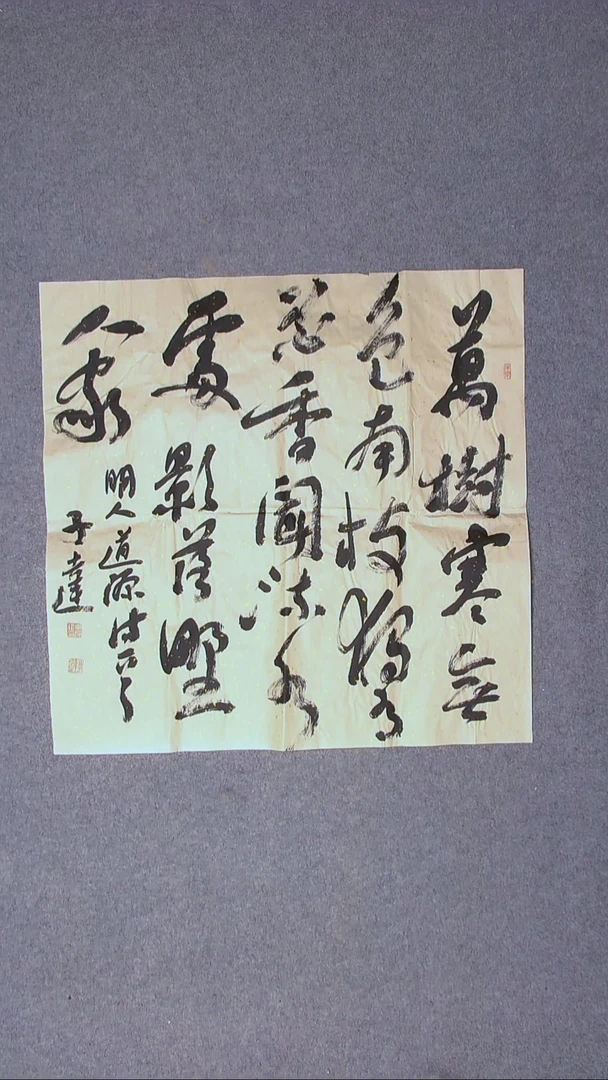 萬樹寒無
色南枝獨有
花香聞流水
處影落野
人家
明人道源詩一首
子達